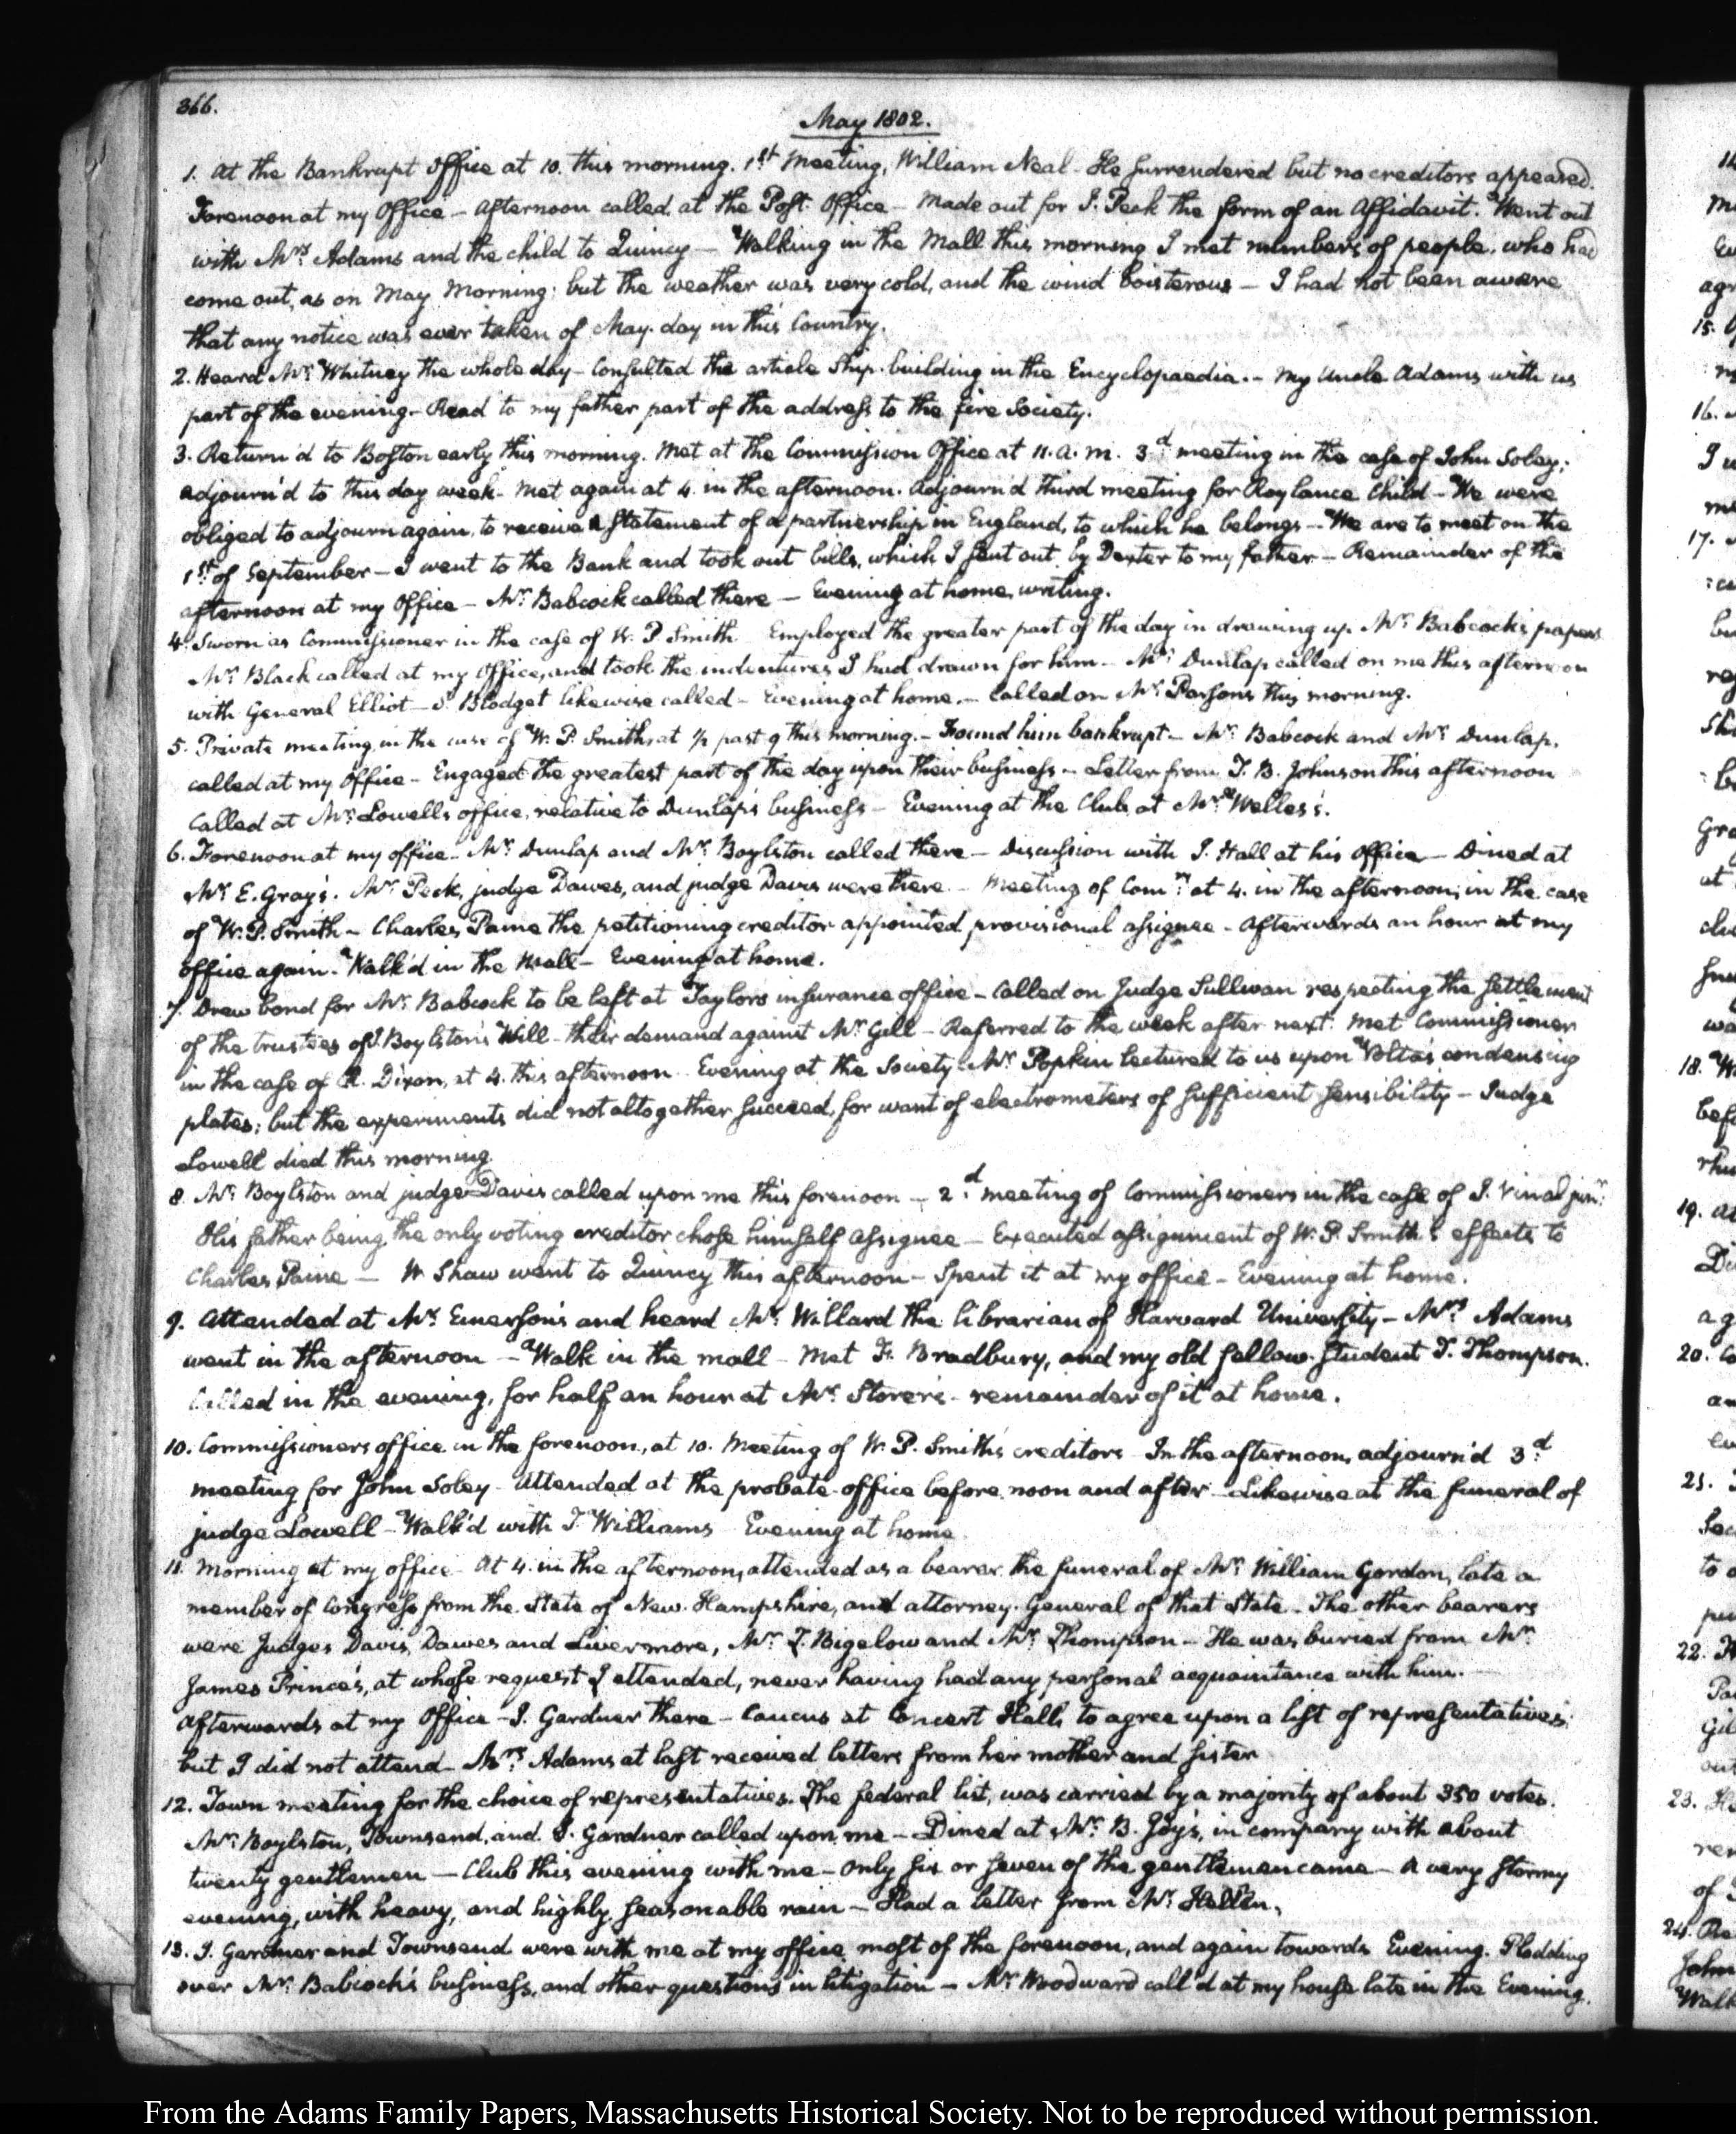 366.
May 1802.
1. At the Bankrupt Office at 10. this morning. 1st Meeting, William Neal – He surrendered but no creditors appeared.
Forenoon at my Office – Afternoon called at the Post-Office – Made out for J. Peck the form of an Affidavit. Went out
with Mrs Adams and the child to Quincy – Walking in the Mall this morning I met numbers of people, who had
come out, as on May Morning: but the weather was very cold, and the wind boisterous – I had not been aware
that any notice was ever taken of May-day in this Country.
2. Heard Mr Whitney the whole day – Consulted the article Ship-building in the Encyclopaedia. – My Uncle Adams with us
part of the evening – Read to my father part of the address to the fire Society.
3. Return'd to Boston early this morning. Met at the Commission Office at 11. a.m. 3d meeting in the case of John Soley;
adjourn'd to this day week. Met again at 4. in the afternoon. Adjourn'd third meeting for Roylance Child – We were
obliged to adjourn again, to receive a statement of a partnership in England, to which he belongs – We are to meet on the
1st of September – I went to the Bank and took out bills, which I sent out by Dexter to my father – Remainder of the
afternoon at my Office – Mr Babcock called there – Evening at home, writing.
4. Sworn as Commissioner in the case of W. P. Smith. Employed the greater part of the day in drawing up Mr Babcock's papers
Mr Black called at my Office, and took the indentures I had drawn for him – Mr Dunlap called on me this afternoon
with General Elliot – S. Blodget likewise called – Evening at home. – Called on Mr Parsons this morning.
5. Private meeting in the case of W. P. Smith, at 1/2 past 9 this morning. – Found him bankrupt – Mr Babcock and Mr Dunlap,
called at my Office – Engaged the greatest part of the day upon their business – Letter from T. B. Johnson this afternoon
Called at Mr Lowell's office, relative to Dunlap's business – Evening at the Club at Mr Welles's.
6. Forenoon at my office – Mr Dunlap and Mr Boylston called there – Discussion with J. Hall at his Office – Dined at
Mr E. Gray's. Mr Peck, judge Dawes, and judge Davis were there – Meeting of Comrs at 4. in the afternoon, in the case
of W. P. Smith – Charles Paine the petitioning creditor appointed provisional assignee – Afterwards an hour at my
office again – Walk'd in the Mall – Evening at home.
7. Drew bond for Mr Babcock to be left at Taylor's insurance office – Called on Judge Sullivan respecting the settlement
of the trustees of J. Boylston's Will – their demand against Mr Gill – Referred to the week after next. Met Commissioner
in the case of R. Dixon, at 4. this afternoon. Evening at the Society. Mr Popkin lectured to us upon Volta's condensing
plates; but the experiments did not altogether succeed, for want of electrometers of sufficient sensibility – Judge
Lowell died this morning.
8. Mr Boylston and judge Davis called upon me this forenoon – 2d meeting of Commissioners in the case of J. Vinal junr.
His father being the only voting creditor chose himself assignee – Executed assignment of W. P. Smith's effects to
Charles Paine – W Shaw went to Quincy this afternoon – Spent it at my office – Evening at home.
9. Attended at Mr Emerson's and heard Mr Willard the librarian of Harvard University – Mrs Adams
went in the afternoon – Walk in the mall – Met F. Bradbury, and my old fellow-student T. Thompson.
Called in the evening, for half an hour at Mr Storer's – remainder of it at home.
10. Commissioners office in the forenoon, at 10. Meeting of W. P. Smith's creditors – In the afternoon adjourn'd 3d
meeting for John Soley – Attended at the probate-office before noon and after – Likewise at the funeral of
judge Lowell – Walk'd with T. Williams – Evening at home.
11. Morning at my office – At 4. in the afternoon, attended as a bearer the funeral of Mr William Gordon, late a
member of Congress from the State of New-Hampshire, and attorney-General of that State – The other bearers
were Judges Davis, Dawes and Livermore, Mr T. Bigelow and Mr Thompson – He was buried from Mr
James Prince's, at whose request I attended, never having had any personal acquaintance with him.
Afterwards at my Office – J. Gardner there – Caucus at Concert Hall, to agree upon a list of representatives;
but I did not attend – Mrs Adams at last received letters from her mother and sister
12. Town meeting for the choice of representatives. The federal list, was carried by a majority of about 350 votes.
Mr Boylston, Townsend, and J. Gardner called upon me – Dined at Mr B. Joy's, in company with about
twenty gentlemen – Club this evening with me – only six or seven of the gentlemen came – A very stormy
evening, with heavy, and highly seasonable rain – Had a letter from Mr Hellen.
13. J. Gardner and Townsend were with me at my office most of the forenoon, and again towards Evening. Plodding
over Mr Babcock's business, and other questions in litigation – Mr Woodward call'd at my house late in the Evening.
From the Adams Family Papers, Massachusetts Historical Society. Not to be reproduced without permission.